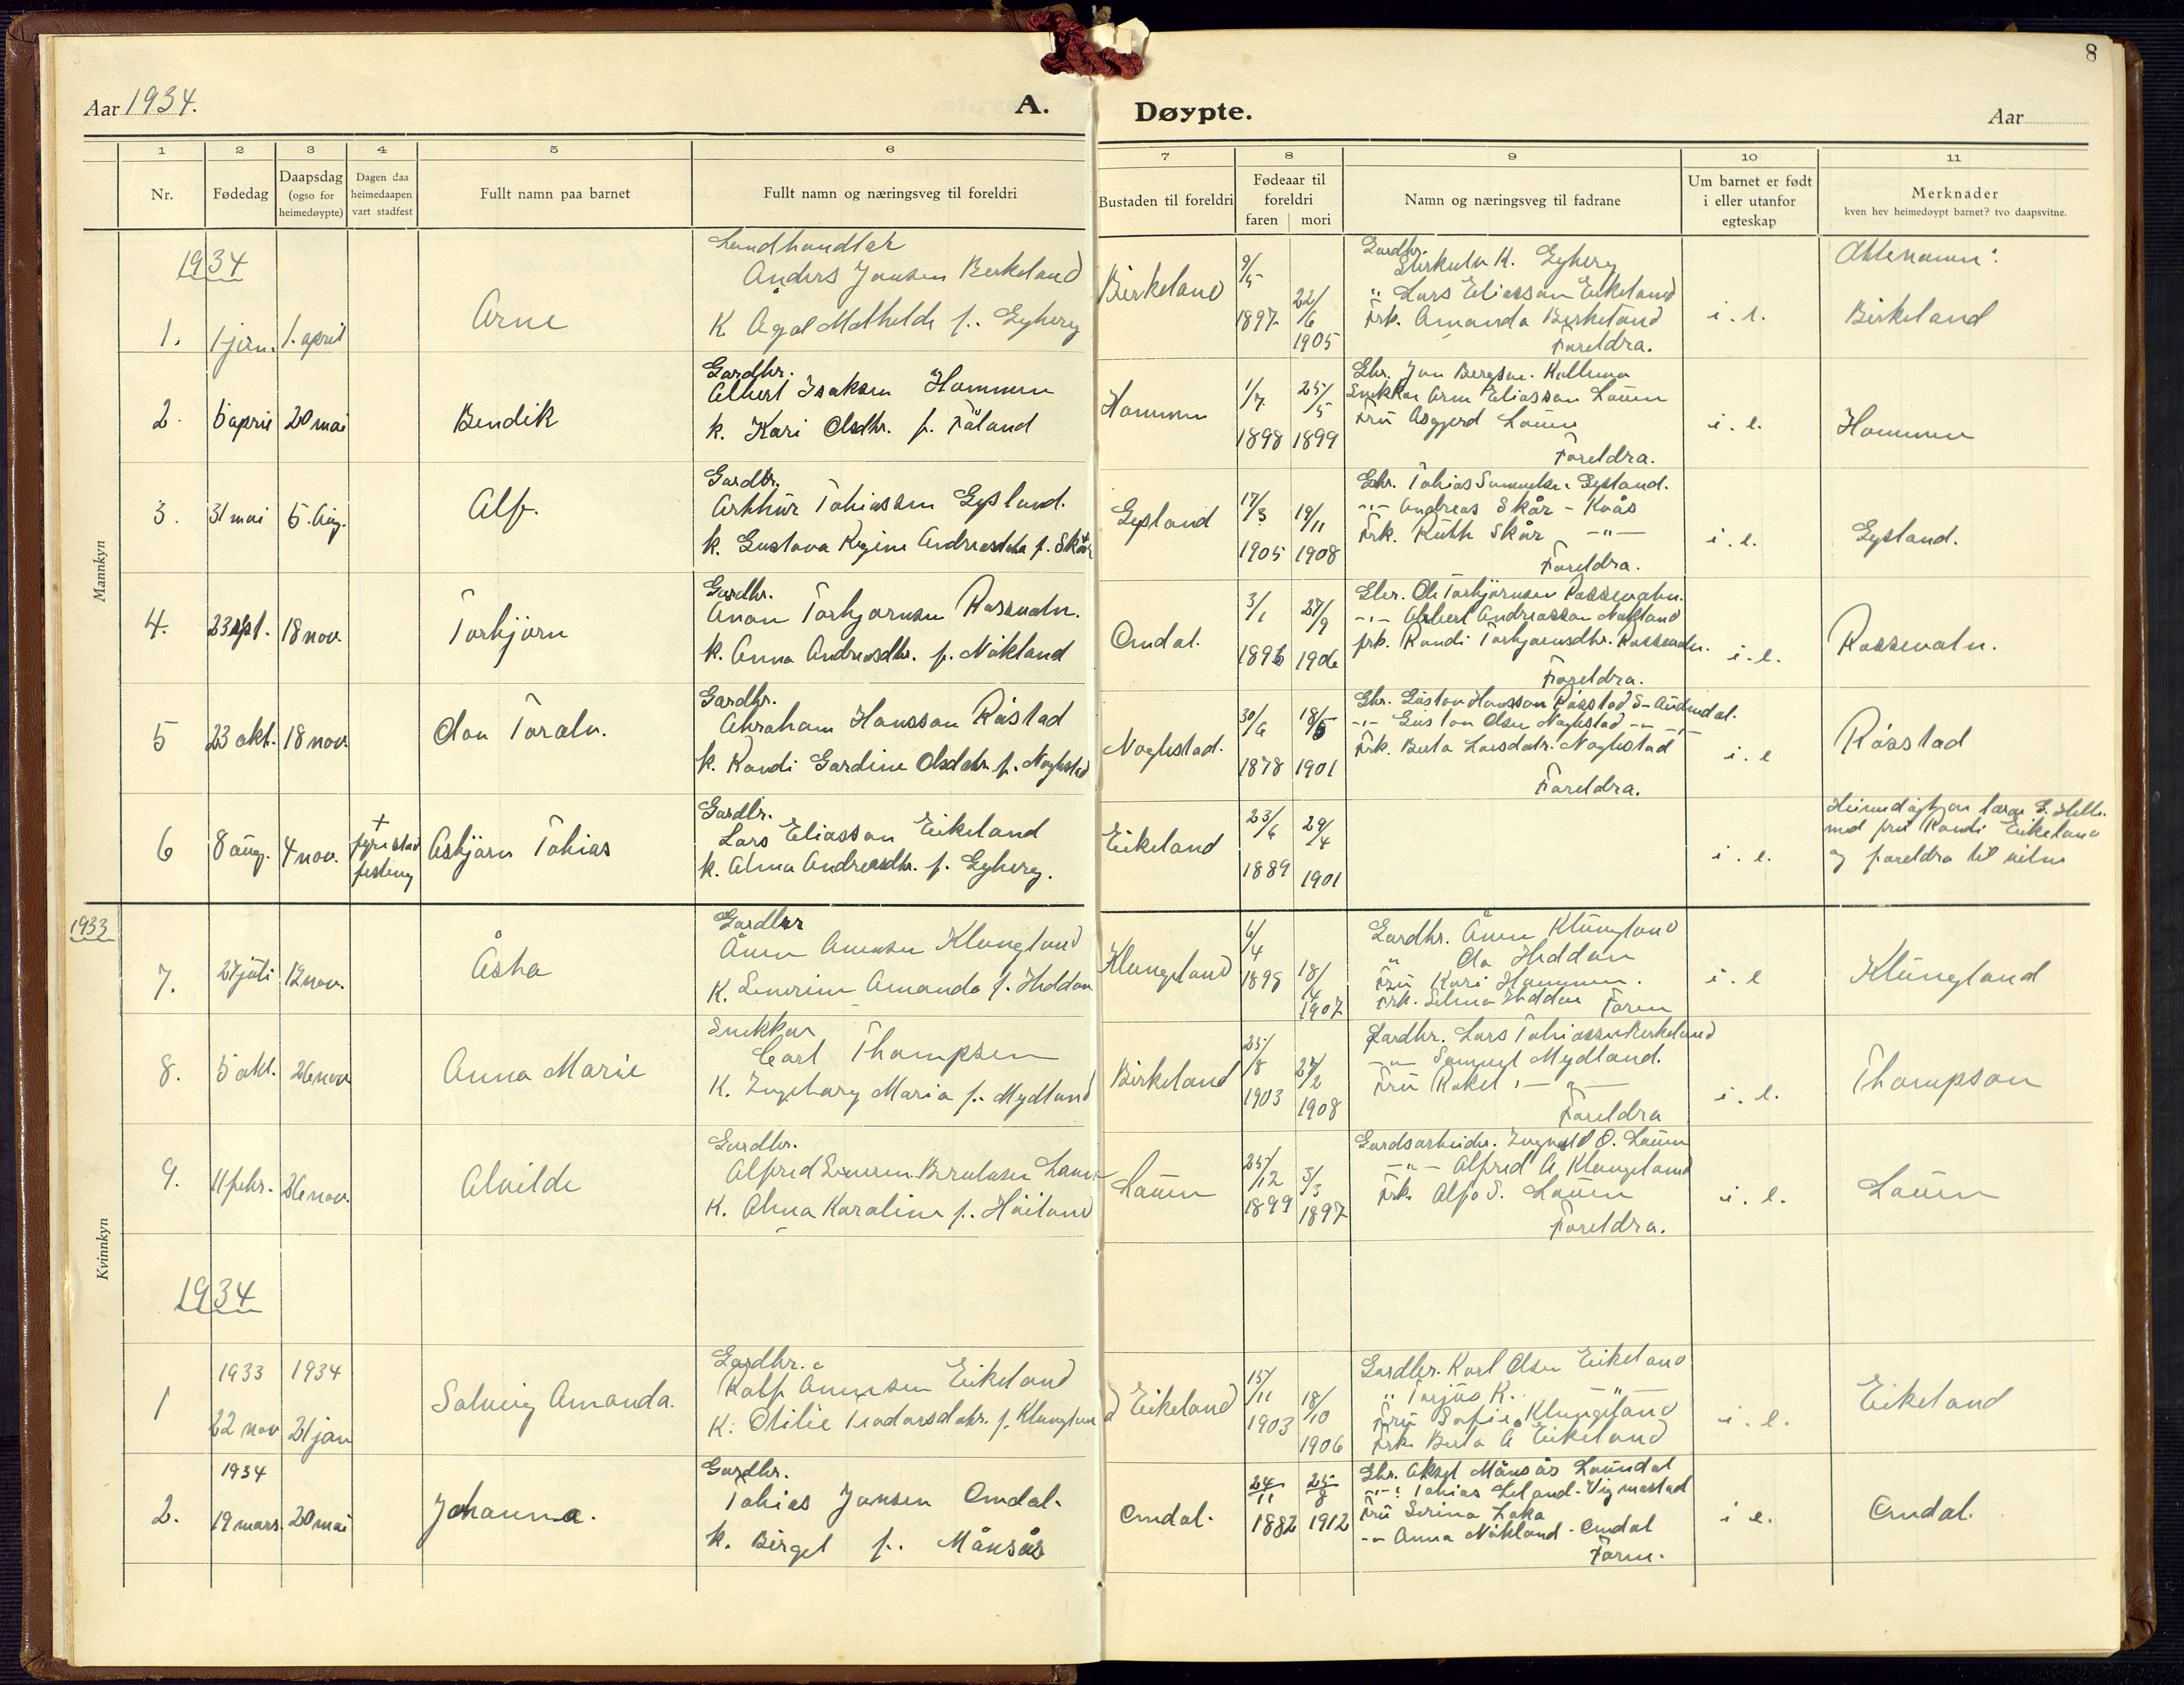 8
Aar 1934.
A.
Døypte.
Aar
1 2 3 4 5 6 7 8 9 10 11
Nr.
Fødedag
Daapsdag
(ogso for
heimedøypte)
Dagen daa
heimedaapen
vart stadfest
Fullt namn paa barnet
Fullt namn og næringsveg til foreldri
Bustaden til foreldri
Fødeaar til
foreldri
faren mori
Namn og næringsveg til fadrane
Um barnet er født
i eller utanfor
egteskap
Merknader
kven hev heimedøypt barnet? tvo daapsvitne.
Mannkyn
1934
1. 1 jan. 1. april
Arne
Landhandlar
Anders Jansen Birkeland
K. Agal Mathilde f. Eyberg
Birkeland
9/5 1897
22/6 1905
Gardbr.
K. Eyberg
" Lars Eliassan Eikeland
Frk. Amanda Birkeland
Foreldra.
i. e.
Ættenamn:
Birkeland
2. 6 april 20 mai
Bendik
Gardbr.
Albert Isaksen Hommen
k. Kari Olsdtr. f. Fåland
Hommen
1/7 1898
25/5 1899
Gbr. Jon Bergsae
Snekkar Arne Eliassan Lauen
Fru Asgjerd Lauen
Foreldra.
i. e.
Hommen
3. 31 mai 5. Aug.
Alf.
Gardbr.
Arthur Tobiassen Eysland.
k. Gustava Regine Andreasdtr. f. Skår
Eysland
17/3 1905
19/11 1908
Gbr. Tobias Samuelsen Eysland.
-"- Andreas Skår - Kvås
Frk. Ruth Skår -"-
Foreldra.
i. e.
Eysland.
4. 23 spt. 18 nov.
Torbjørn
Gardbr.
Anon Torbjørnsen Rossevatn.
k. Anna Andreasdtr. f. Nøkland
Omdal.
3/1 1896
27/9 1906
Gbr. Ole Torbjørnsen Rossevatn.
-"- Albert Andreassen Nøkland
frk. Randi Torbjørnsdtr. Rossevatn.
Foreldra.
i. e.
Rossevatn.
5 23 okt. 18 nov.
Olav Toralv.
Gardbr.
Abraham Hansson Røsstad
k. Randi Gardine Olsdatr. f. Naglestad
Naglestad.
30/6 1878
18/5 1901
Gbr. Gustav Hansson Røsstad S-Audnedal.
-"- Gustav Olsen Naglestad -"-
Frk. Berta Larsdatr. Naglestad
Foreldra.
i. e
Røsstad
6 8 aug. 4 nov.
+
fyre stad
festing
Asbjørn Tobias
Gardbr.
Lars Eliassan Eikeland
k. Alma Andreasdtr. f. Eyberg.
Eikeland
23/6 1889
29/4 1901
i. e.
med fru Randi Eikeland
og foreldra til vitne
1933
Kvinnkyn
7. 27 juli 12 nov.
Åsta
Gardbr
Ånen Anensen Klungland
K. Severine Amanda f. Heddan
Klungeland
6/4 1898
18/4 1907
Gardbr. Ånen Klungland
" Ola Heddan
Fru Kari Hommen.
Frk. Selma Heddan Faren
i. e
Klungland
8. 5 okt. 26 nov.
Anna Marie
Snekkar
Carl Thompsen
K. Ingeborg Maria f. Mydland
Birkeland
25/8 1903
27/2 1908
Gardbr. Lars Tobiassen Birkeland
-"- Samuel Mydland.
Fru Rakel -"-
Foreldra
i. e.
Thompson
9. 11 febr. 26 nov.
Alvilde
Gardbr.
Alfred Severin Berntsen Lauen
K. Alma Karoline f. Høiland
Lauen
25/12 1899
3/3 1897
Gardsarbeidr. Ingvald O. Lauen
-"- Alfred A Klungeland
Frk. S. Lauen
Foreldra.
i. e.
Lauen
1934
1 1933 22 nov 1934 21 jan
Solveig Amanda.
Gardbr.
Rolf Anensen Eikeland
K. Otilie Teodorsdatr. f. Klungland
Eikeland
15/11 1903
18/10 1906
Gardbr. Karl Olsen Eikeland
" Torjus K. -"-
Fru Sofie Klungeland
Frk. Berta A Eikeland
i. e.
Eikeland
2. 1934 19 mars. 20 mai
Johanna.
Gardbr.
Tobias Jansen Omdal.
k. Birget f. Månsås
Omdal.
24/11 1882
25/8 1912
Gbr. Aksel Månsås Laudal
-"- Tobias Leland - Vigmostad
Fru Serina Laka
-"- Anna Nøkland - Omdal
Faren.
i e.
Omdal.